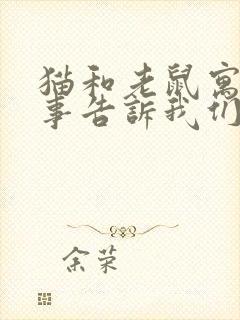 猫和老鼠寓
事告訴我们
余荣